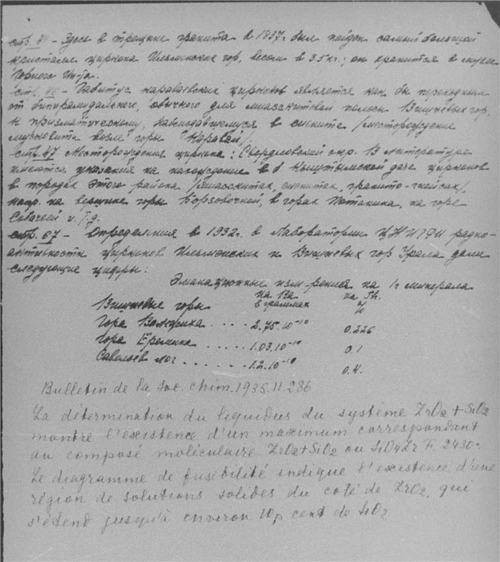 стр. 31 - Здесь в трещине гранита в 1837г. был найден самый большой
кристалл циркона Ильменских гор, весом в 3.5 кг.; он хранится в музее
Горного Ин-та.
стр. 40 - Габитус циркона является как бы переходным
от бипирамидального, обычного для миаскитовой полосы Вишневых гор,
к призматическому, наблюдавшемуся в сиенита /месторождение
мусковита возле горы Каравай/
стр. 47 Месторождения циркона: Свердловский окр. В литературе
имеются указания на нахождение в б. даче цирконов
в породах этого района /миаскитах, сиенитах, гранито-гнейсах/,
напр. на вершине горы Борзовочной, в горах Потанина, на горе
и т.д.
стр. 67 - Определения в 1932г. в Лаборатории радио-
активности цирконов Ильменских и Вишневых гор Урала дали
следующие цифры:
Эманационные измерения на 1г минерала
на Ra на Th.
Вишневые горы в граммах
Гора Долгинка ..... 2.75.10⁻¹⁰ 0.226
Гора Еремина ..... 1.03.10⁻¹⁰ 0.1
Савельев лог ..... 1.2.10⁻¹⁰ 0.4.
Bulletin de la soc. chim. 1935. 11. 286
La détermination du liquidus du système ZrO2 + SiO2
montre l'existence d'un maximum correspondant
au composé moléculaire ZrO2+SiO2 ou SiO4Zr F. 2430°
Le diagramme de fusibilité indique l'existence d'une
région de solutions solides du coté de ZrO2, qui
s'étend jusqu'à environ 10 p cent de SiO2